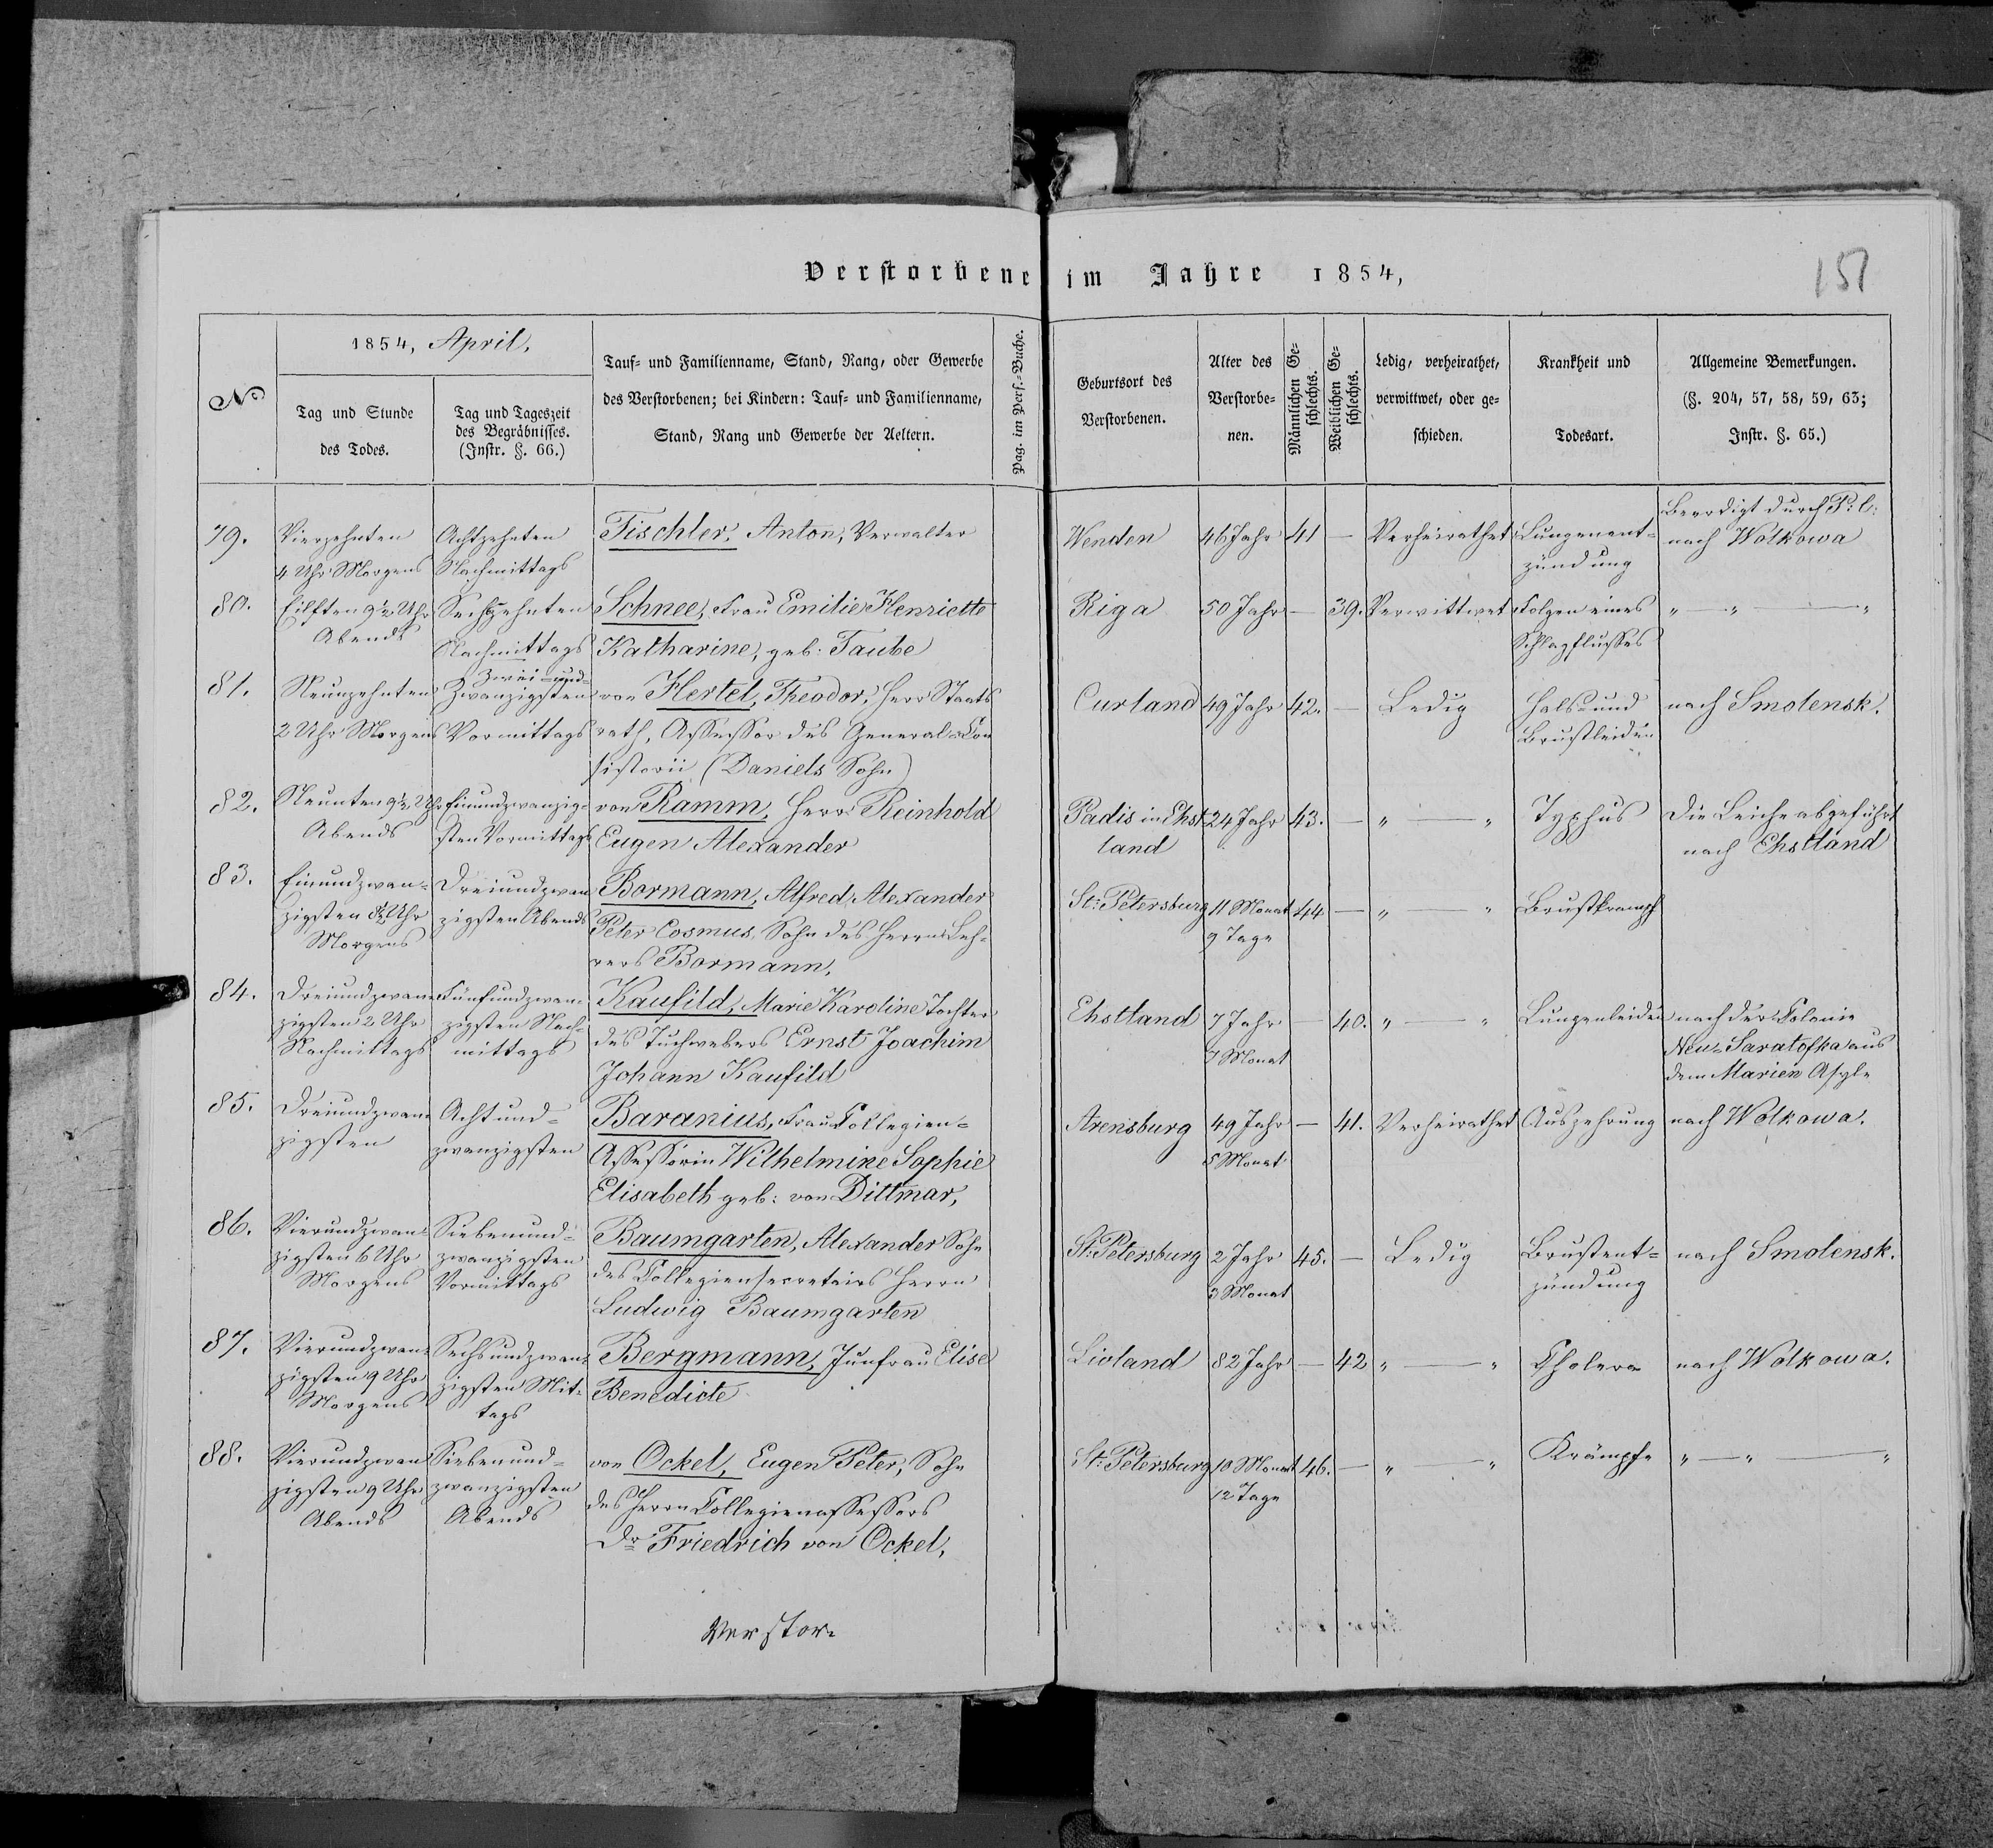 Verstorbene im Jahre 1854,
151
№
1854, April,
Tag und Stunde
des Todes.
Tag und Tageszeit
des Begräbnisses.
(Instr. §. 66.)
Tauf- und Familienname, Stand, Rang, oder Gewerbe
des Verstorbenen; bei Kindern: Tauf- und Familienname,
Stand, Rang und Gewerbe der Aeltern.
Pag. im Pers.-Buche.
Geburtsort des
Verstorbenen.
Alter des
Verstorbe-
nen.
Männlichen Ge-
schlechts.
Weiblichen Ge-
schlechts.
Ledig, verheirathet,
verwittwet, oder ge-
schieden.
Krankheit und
Todesart.
Allgemeine Bemerkungen.
(§. 204, 57, 58, 59, 63;
Instr. §. 65.)
79.
Vierzehnten
4 Uhr Morgens
Achtzehnten
Nachmittags
Tischler, Anton, Verwalter
Wenden
46 Jahr
41
—
Verheirathet
Lungenent-
zündung
Beerdigt durch P: C:
nach Wolkowa
80.
Eilften 9½ Uhr
Abends
Sechzehnten
Nachmittags
Schnee, Frau Emilie Henriette
Katharine, geb: Taube
Riga
50 Jahr
—
39.
Verwittwet
Folgen eines
Schlagflusses
" — " — "
81.
Neunzehnten
2 Uhr Morgens
Zwei-und-
Zwanzigsten
Vormittags
von Hertel, Theodor, Herr Staats
rath, Assessor des General-Con
sistorii (Daniels Sohn)
Curland
49 Jahr
42.
—
Ledig
Hals- und
Brustleiden
nach Smolensk.
82.
Neunten 9½ Uhr
Abends
Einundzwanzig-
sten Vormittags
von Ramm, Herr Reinhold
Eugen Alexander
Padis in Ehst
land
24 Jahr
43.
—
" — "
Typhus
Die Leiche abgeführt
nach Ehstland
83.
Einundzwan-
zigsten 8½ Uhr
Morgens
Dreiundzwan
zigsten Abends
Bormann, Alfred Alexander
Peter Cosmus, Sohn des Herrn Leh-
rers Bormann,
St: Petersburg
11 Monat
9 Tage
44
—
" — "
Brustkrampf
84.
Dreiundzwan-
zigsten 2 Uhr
Nachmittags
Fünfundzwan-
zigsten Nach-
mittags
Kaufild, Marie Karoline Tochter
des Tuchwebers Ernst Joachim
Johann Kaufild
Ehstland
7 Jahr
7 Monat
—
40.
" — "
Lungenleiden
nach der Colonie
Neu-Saratofka aus
dem Marien Asyle
85.
Dreiundzwan-
zigsten
Acht und-
zwanzigsten
Baranius, Frau Collegien-
Assessorin Wilhelmine Sophie
Elisabeth geb: von Dittmar,
Arensburg
49 Jahr
5 Monat
—
41.
Verheirathet
Auszehrung
nach Wolkowa.
86.
Vierundzwan-
zigsten 6 Uhr
Morgens
Siebenund-
zwanzigsten
Vormittags
Baumgarten, Alexander Sohn
des Collegiensecretairs Herrn
Ludwig Baumgarten
St. Petersburg
2 Jahr
3 Monat
45.
—
Ledig
Brustent-
zündung
nach Smolensk.
87.
Vierundzwan-
zigsten 9 Uhr
Morgens
Sechsundzwan-
zigsten Mit-
tags
Bergmann, Junfrau Elise
Benedicte
Livland
82 Jahr
—
42
" — "
Cholera
nach Wolkowa.
88.
Vierundzwan
zigsten 9 Uhr
Abends
Siebenund-
zwanzigsten
Abends
von Ockel, Eugen Peter, Sohn
des Herrn Collegienassessors
Dr Friedrich von Ockel,
St: Petersburg
10 Monat
12 Tage
46.
—
" — "
Krämpfe
" — " — "
Verstor-